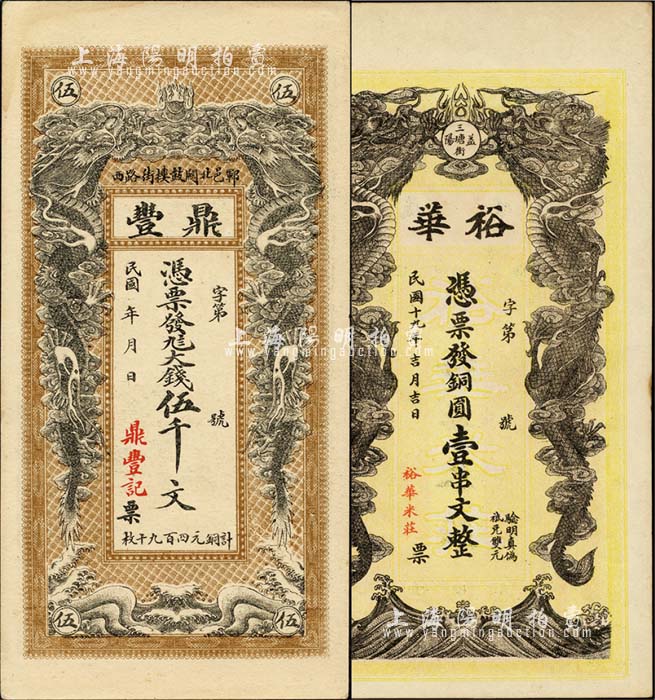 上海陽明拍賣
www.yangmingauction.com
伍
伍
鄆邑北關鼓樓街路西
鼎豐
字第
號
憑票發九大錢伍千文
民國 年 月 日
鼎豐記
票
計銅元四百九十枚
伍
伍
益
三塘街
陽
裕華
字第
號
憑票發銅圓壹串文整
民國十九年吉月吉日
裕華米莊
票
驗明真偽
祗兌雙元
上海陽明拍賣
www.yangmingauction.com
上海陽明拍賣
www.yangmingauction.com